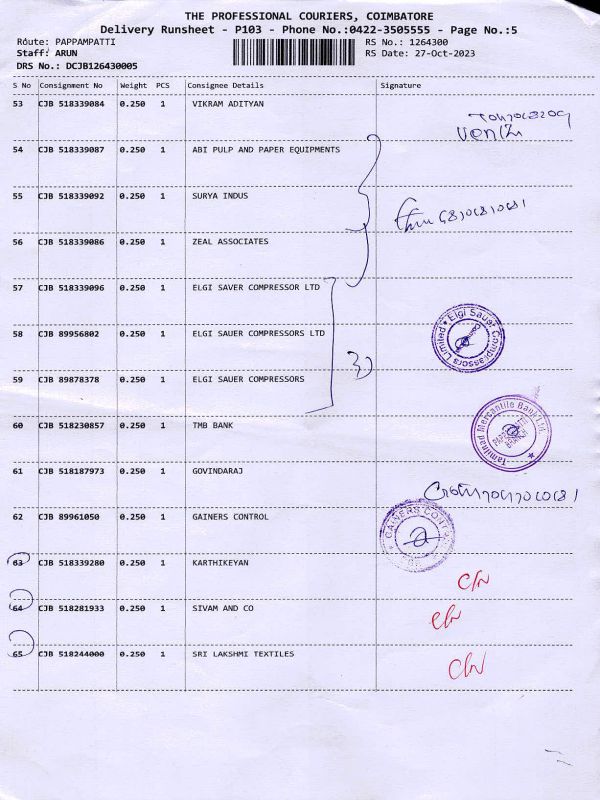 THE PROFESSIONAL COURIERS, COIMBATORE
Delivery Runsheet - P103 - Phone No.:0422-3505555 - Page No.:5
Route: PAPPAMPATTI RS No.: 1264300
Staff: ARUN RS Date: 27-Oct-2023
DRS No.: DCJB126430005
S No Consignment No Weight PCS Consignee Details Signature
53 CJB 518339084 0.250 1 VIKRAM ADITYAN
54 CJB 518339087 0.250 1 ABI PULP AND PAPER EQUIPMENTS
55 CJB 518339092 0.250 1 SURYA INDUS
56 CJB 518339086 0.250 1 ZEAL ASSOCIATES
57 CJB 518339096 0.250 1 ELGI SAVER COMPRESSOR LTD
58 CJB 89956802 0.250 1 ELGI SAUER COMPRESSORS LTD
Elgi Sauer Compressors Limited
59 CJB 89878378 0.250 1 ELGI SAUER COMPRESSORS
3)
60 CJB 518230857 0.250 1 TMB BANK
Tamilnad Mercantile Bank Ltd.
BRANCH
61 CJB 518187973 0.250 1 GOVINDARAJ
62 CJB 89961050 0.250 1 GAINERS CONTROL
GAINERS
63 CJB 518339280 0.250 1 KARTHIKEYAN
64 CJB 518281933 0.250 1 SIVAM AND CO
65 CJB 518244000 0.250 1 SRI LAKSHMI TEXTILES